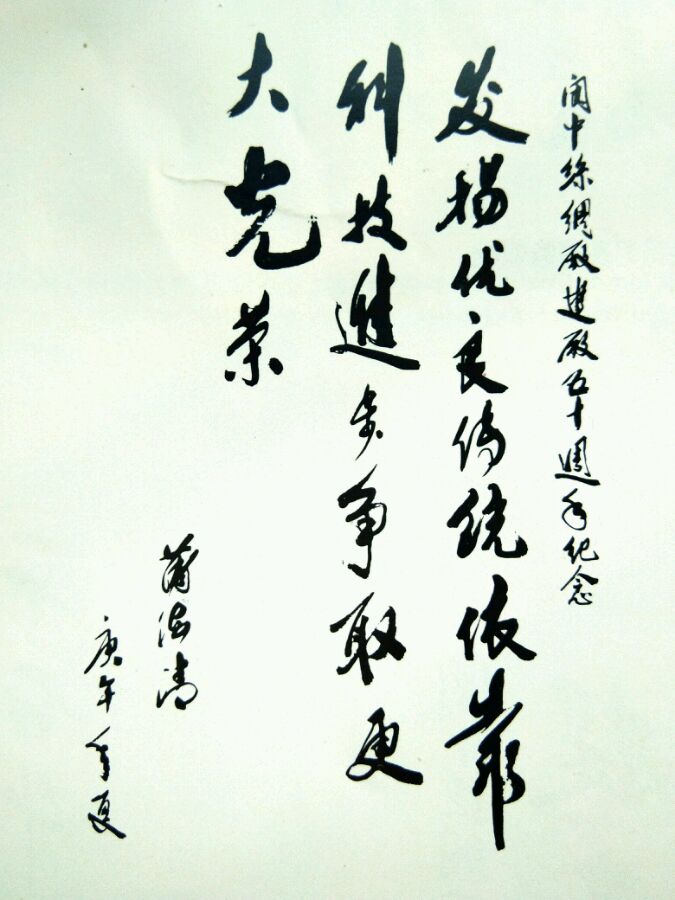 阆中絲綢厰建厰五十週年纪念
发扬优良传统依靠
科技進步争取更
大光荣
蒲海清
庚午年夏